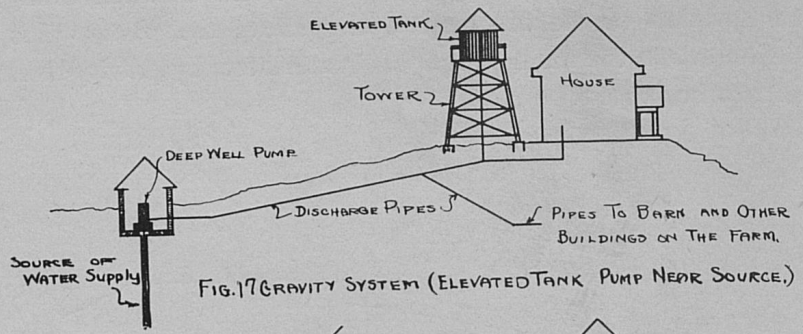 ELEVATED TANK
HOUSE
TOWER
DEEP WELL PUMP
DISCHARGE PIPES
PIPES TO BARN AND OTHER
BUILDINGS ON THE FARM.
SOURCE OF
WATER SUPPLY
FIG.17 GRAVITY SYSTEM (ELEVATED TANK PUMP NEAR SOURCE.)